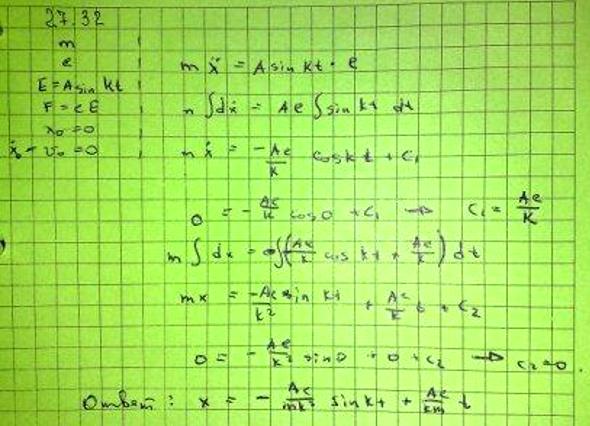 27.32
m
e
E = A sin kt
F = e E
x₀ = 0
ẋ₀ = v₀ = 0
m ẍ = A sin kt · e
m ∫ dẋ = Ae ∫ sin kt dt
m ẋ = -Ae/k cos kt + C₁
0 = - Ae/k cos 0 + C₁ → C₁ = Ae/k
m ∫ dx = ∫(-Ae/k cos kt + Ae/k) dt
mx = -Ae/k² sin kt + Ae/k t + C₂
0 = - Ae/k² sin 0 + 0 + C₂ → C₂ = 0.
Ответ: x = - Ae/mk² sin kt + Ae/km t